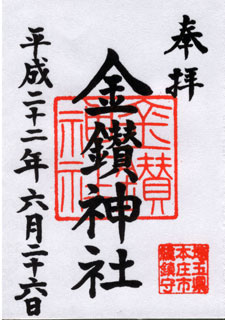 奉拝
金鑚神社
金鑚神社
埼玉県
本庄市
総鎮守
平成二十二年六月二十六日